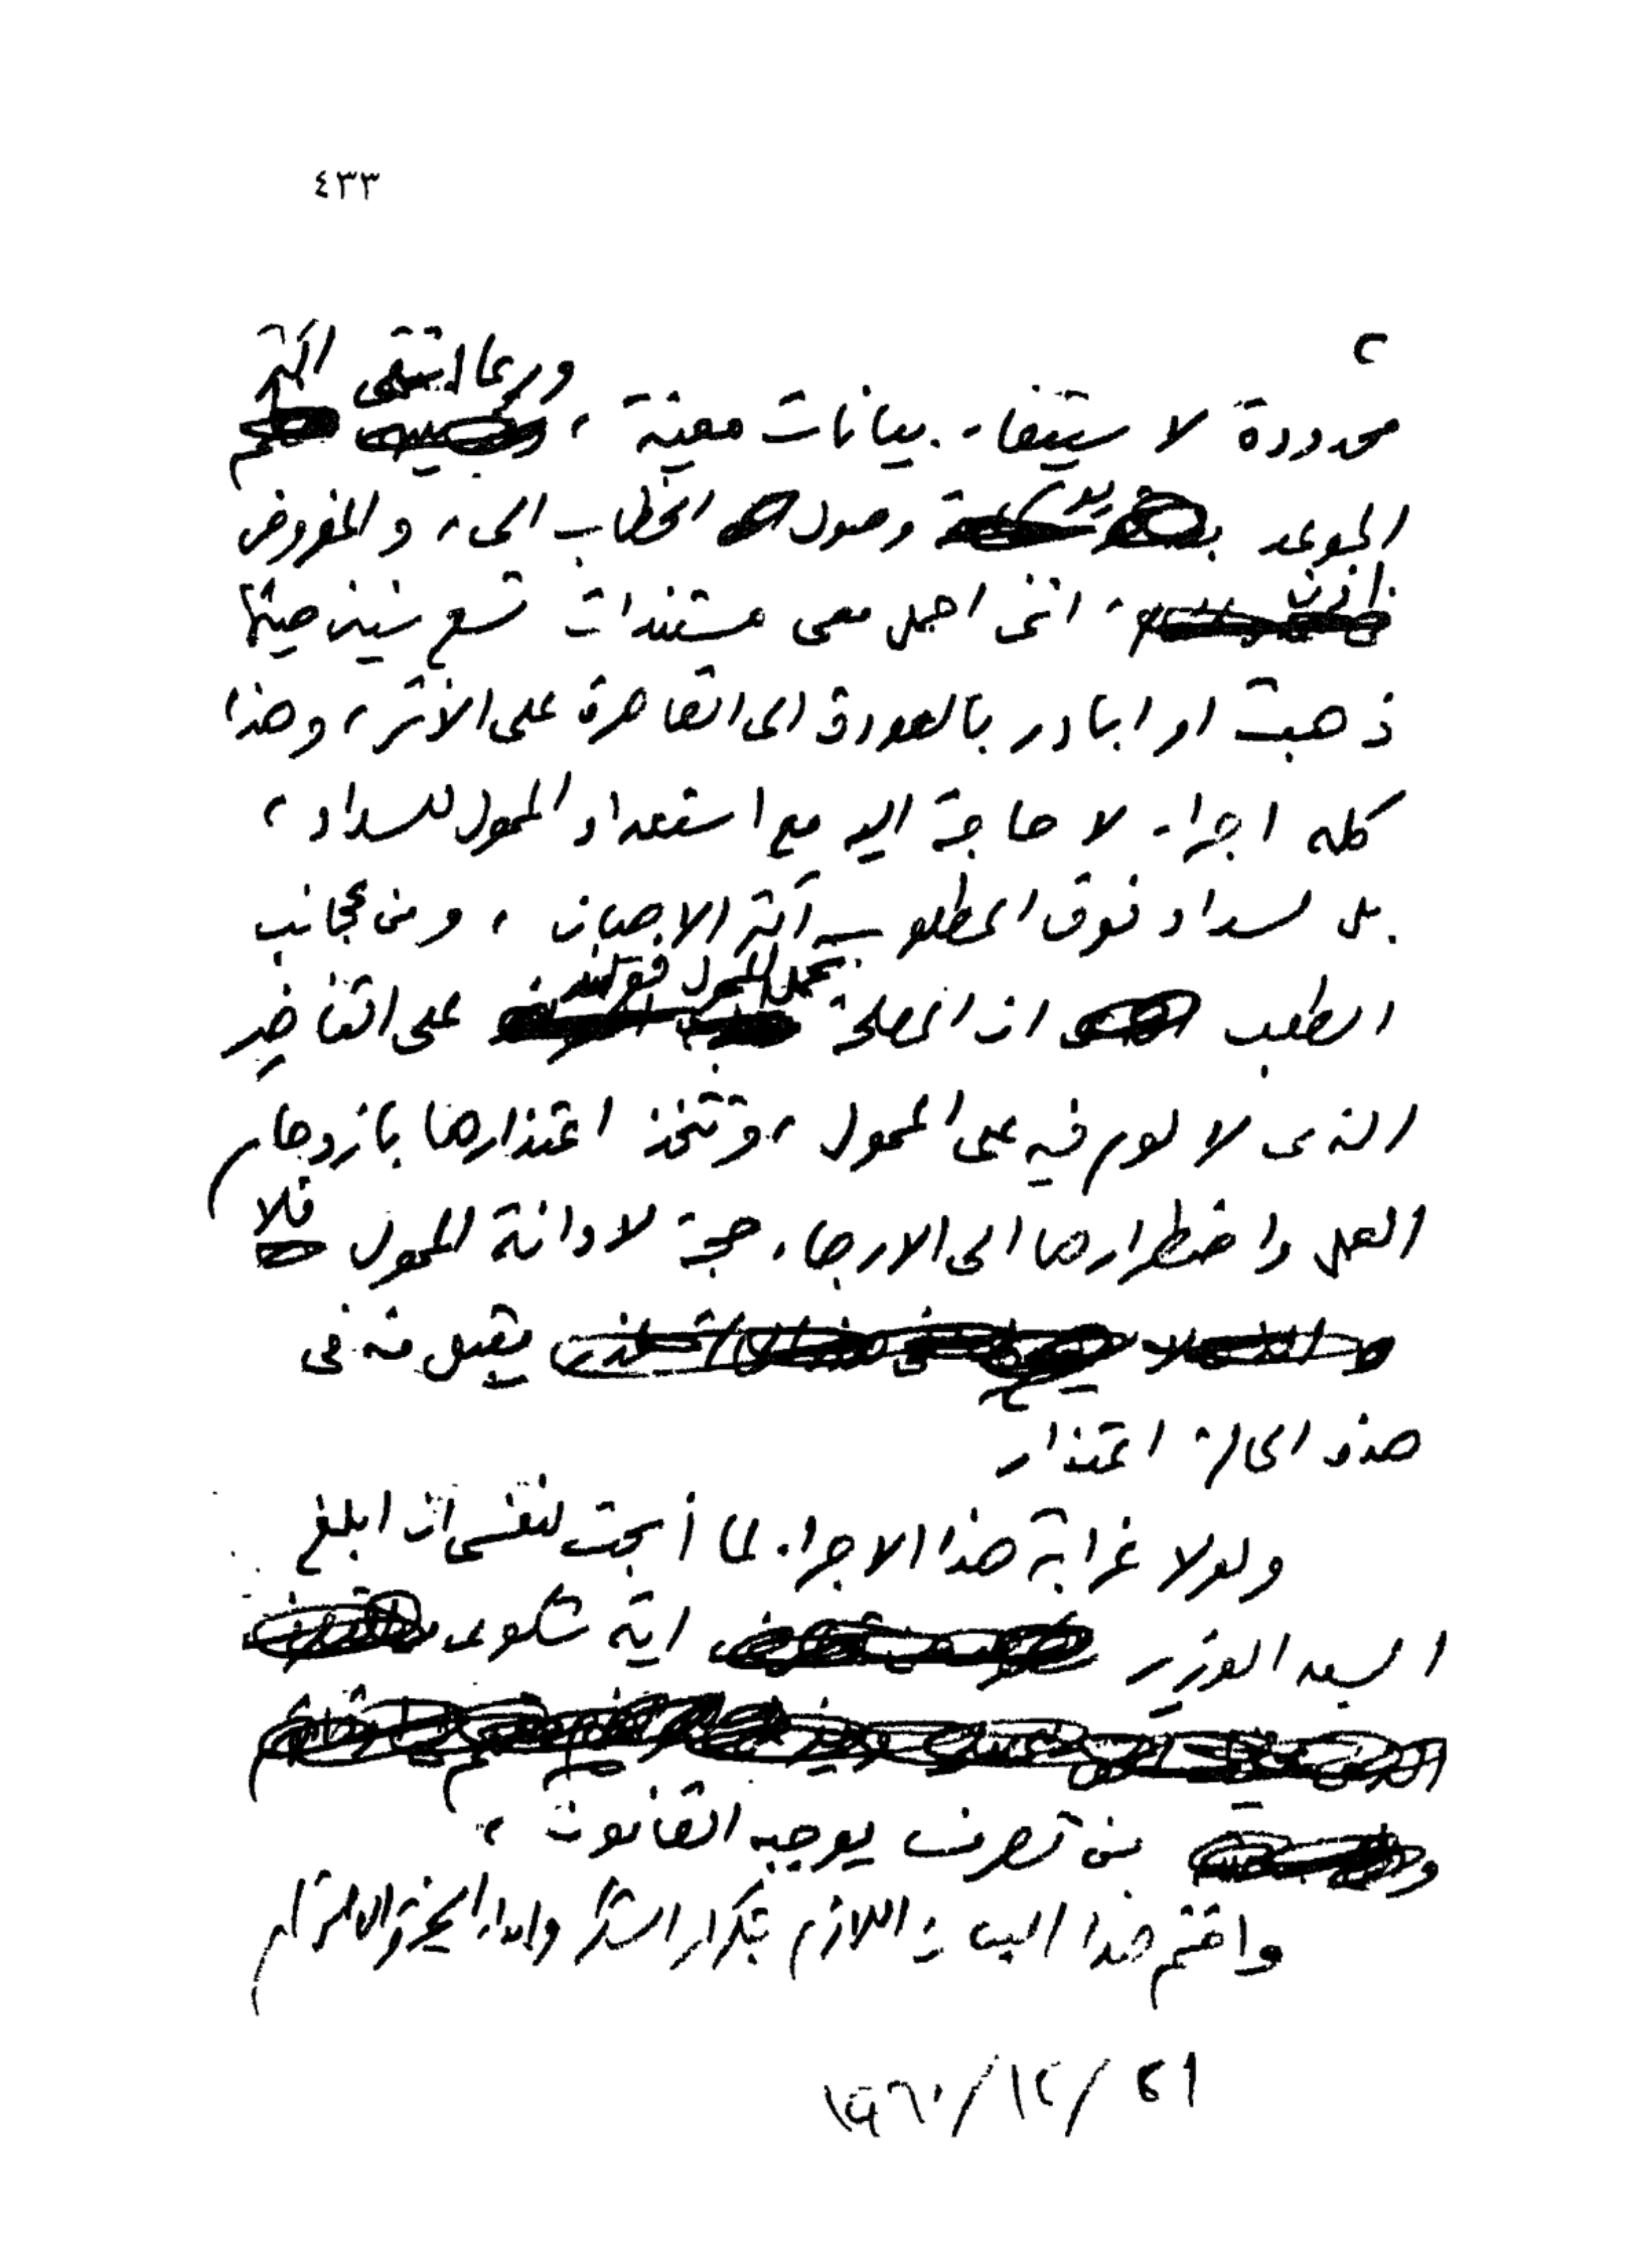 ٤٣٣
٢
محدودة لاستيفاء بيانات معينة ، وربما انتهى اكثر
الموعد وصول الخطاب الى ، والمفروض
اذن اننى احمل معى مستندات تسع سنين حيثما
ذهبت او ابادر بالعودة الى القاهرة على الاثر ، وهذا
كله اجراء لا حاجة اليه مع استعداد الممول للسداد ،
بل لسداد فوق المطلوب فى اكثر الاحيان ، ومن عجائب
الطلب ان المصلحة على التقاضى
الذى لا لوم فيه على الممول ، وتتخذ اعتذارها بازدحام
العمل واضطرارها الى الارجاء حجة لادانة الممول فلا
يقبل منه فى
هذه الحالة اعتذار
ولولا غرابة هذا الاجراء لما أبحت لنفسى ان ابلغ
السيد الوزير اية شكوى
من تصرف يوجبه القانون ،
واختم هذا البيان اللازم بتكرار الشكر وابداء التحية والاحترام
٢١/١٢/١٩٦٠